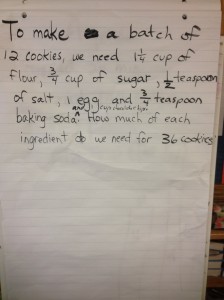 To make a batch of
12 cookies, we need 1 1/4 cup of
flour, 3/4 cup of sugar, 1/2 teaspoon
of salt, 1 egg, and 3/4 teaspoon
and
baking soda. How much of each
ingredient do we need for 36 cookies?